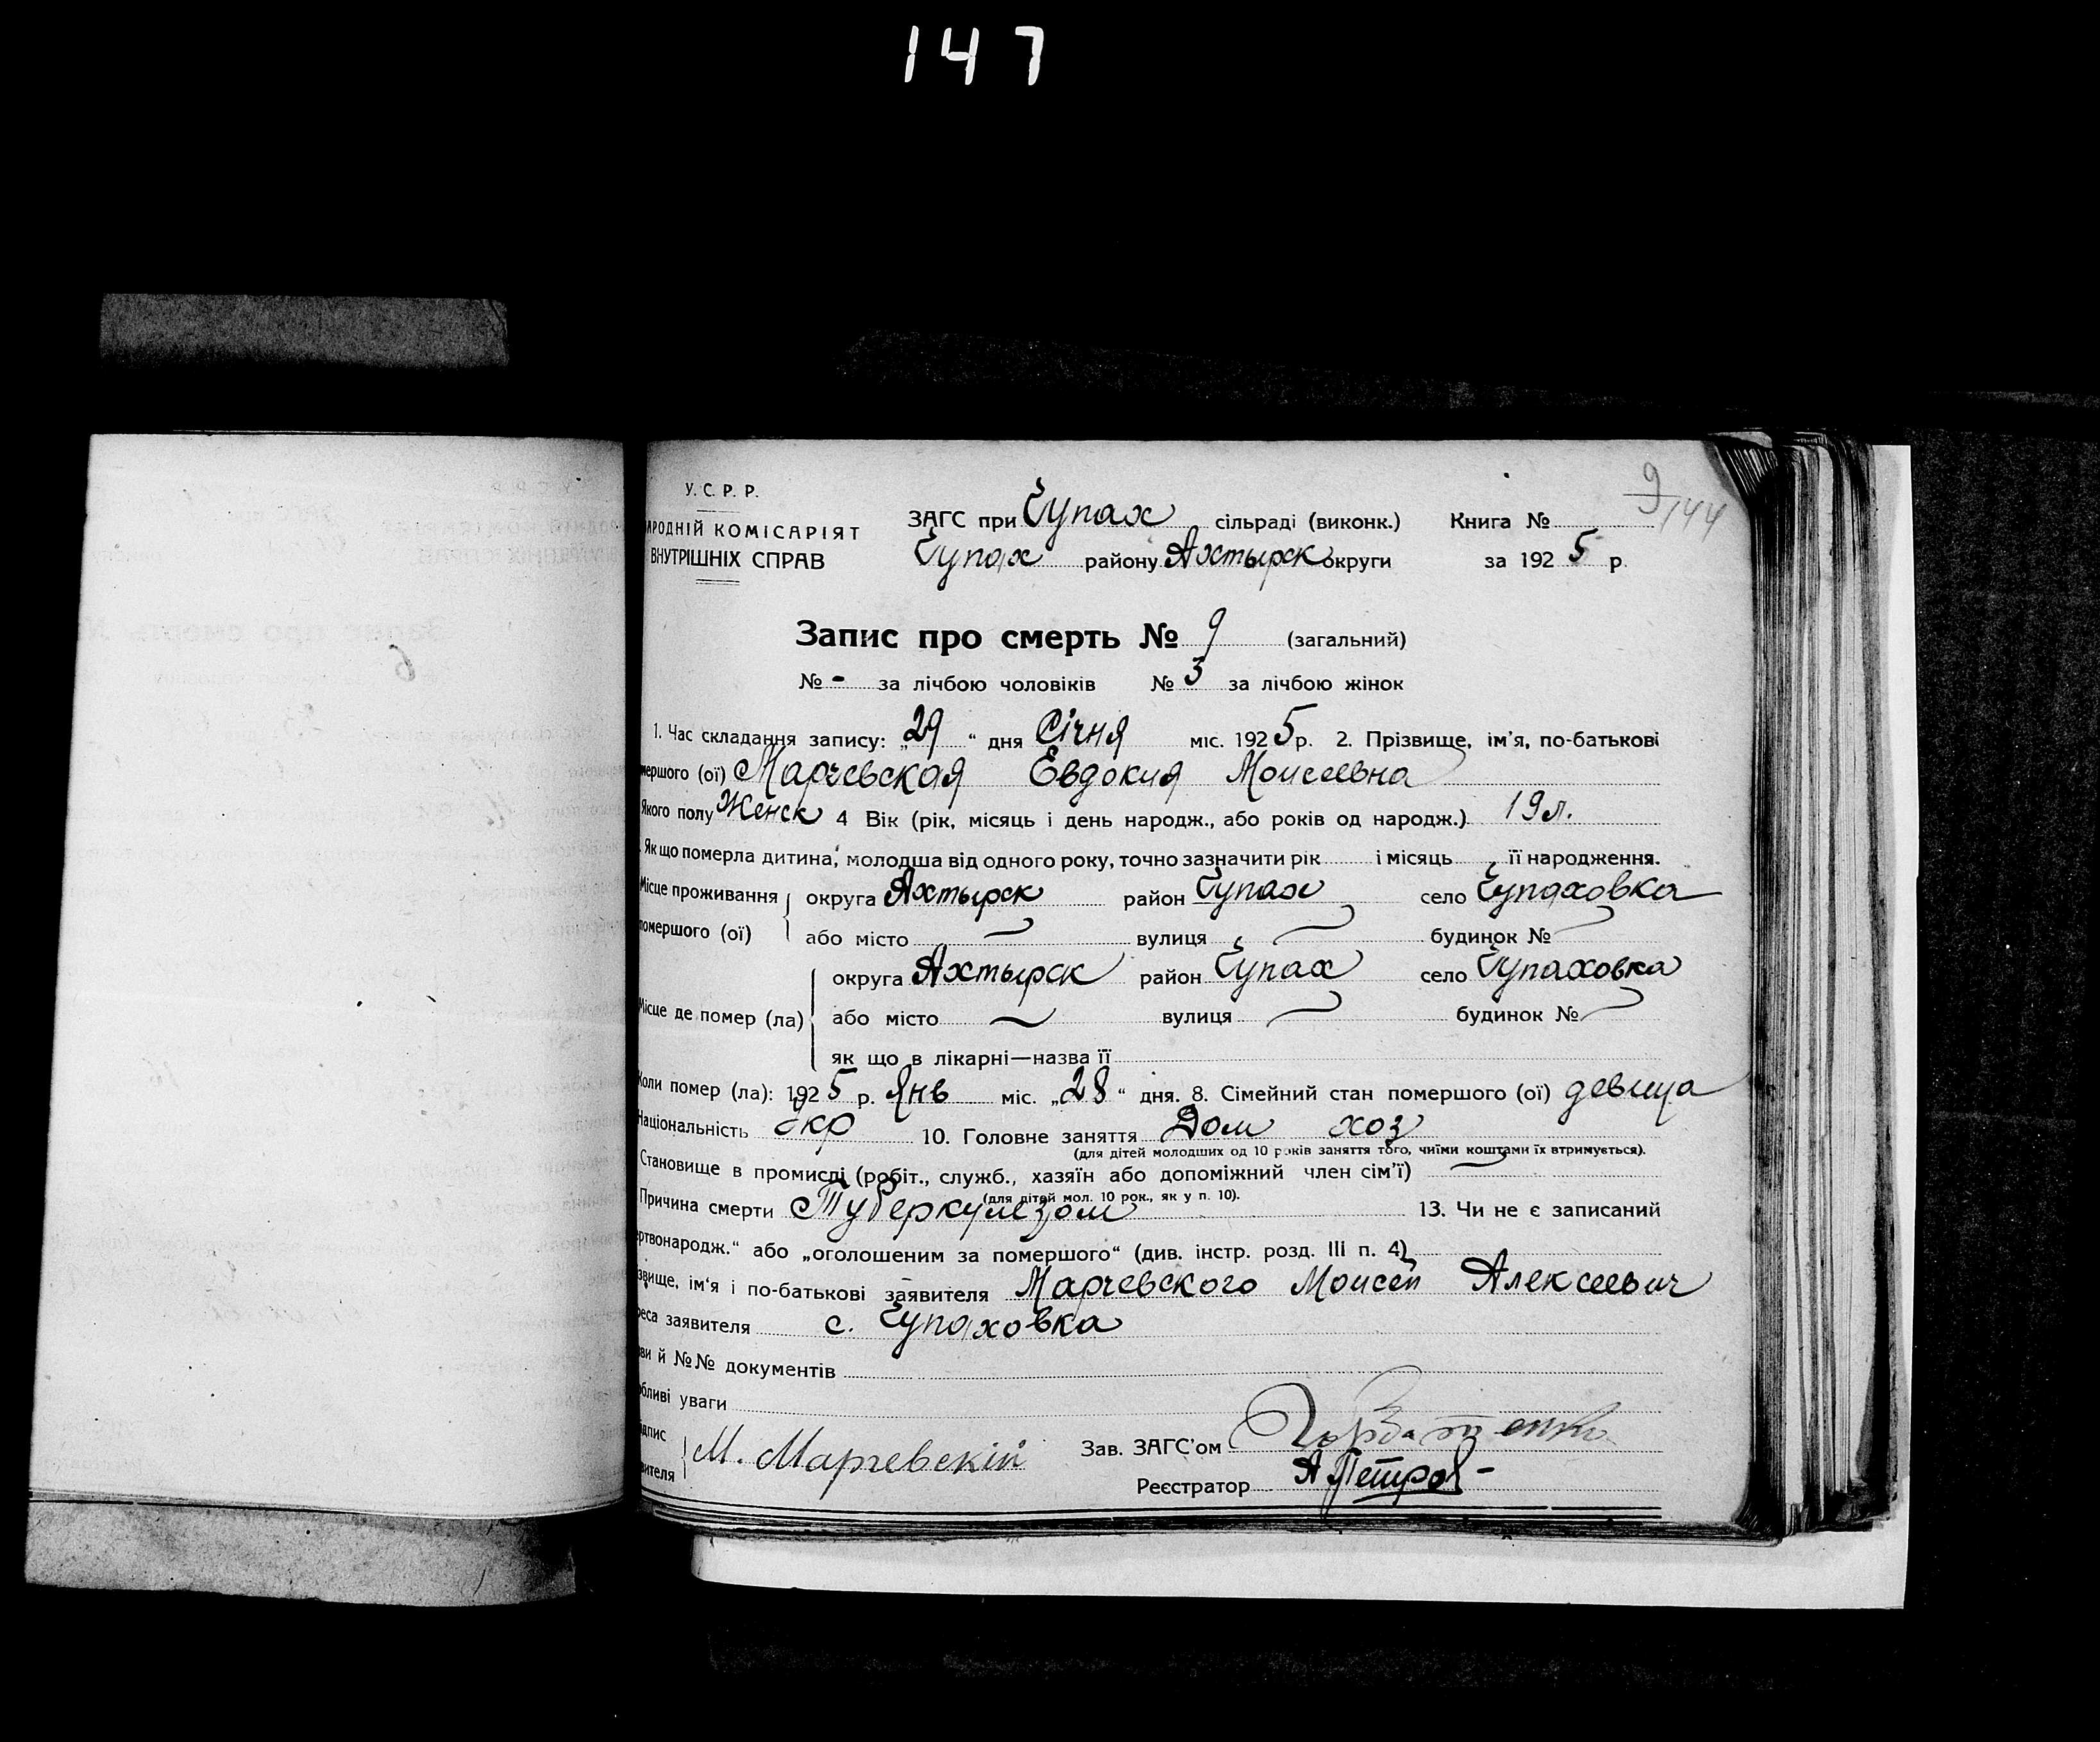 147
9/144
У. С. Р. Р.
АРОДНІЙ КОМІСАРІЯТ
ВНУТРІШНІХ СПРАВ
ЗАГС при Чупах сільраді (виконк.) Книга №
Чупах району Ахтырск округи за 1925 р.
Запис про смерть № 9 (загальний)
№ - за лічбою чоловіків № 3 за лічбою жінок
1. Час складання запису: „29“ дня Січня міс. 1925 р. 2. Прізвище, ім'я, по-батькові
мершого (ої) Марчевская Евдокия Моисеевна
Якого полу Женск 4 Вік (рік, місяць і день народж., або років од народж.) 19 л.
. Як що померла дитина, молодша від одного року, точно зазначити рік і місяць її народження.
Місце проживання округа Ахтырск район Чупах село Чупаховка
помершого (ої) або місто вулиця будинок №
округа Ахтырск район Чупах село Чупаховка
Місце де помер (ла) або місто вулиця будинок №
як що в лікарні—назва її
Коли помер (ла): 1925 р. Янв міс. „28“ дня. 8. Сімейний стан помершого (ої) девица
Національність Укр 10. Головне заняття Дом хоз
(для дітей молодших од 10 років заняття того, чиїми коштами їх втримується).
Становище в промислі (робіт., служб., хазяїн або допоміжний член сім'ї)
(для дітей мол. 10 рок., як у п. 10).
Причина смерти Туберкулезом 13. Чи не є записаний
ертвонародж.“ або „оголошеним за помершого“ (див. інстр. розд. III п. 4)
звище, ім'я і по-батькові заявителя Марчевского Моисей Алексеевич
реса заявителя с. Чупаховка
ви й №№ документів
бливі уваги
ідпис
вителя М. Марчевскій Зав. ЗАГС'ом
Реєстратор А Петров